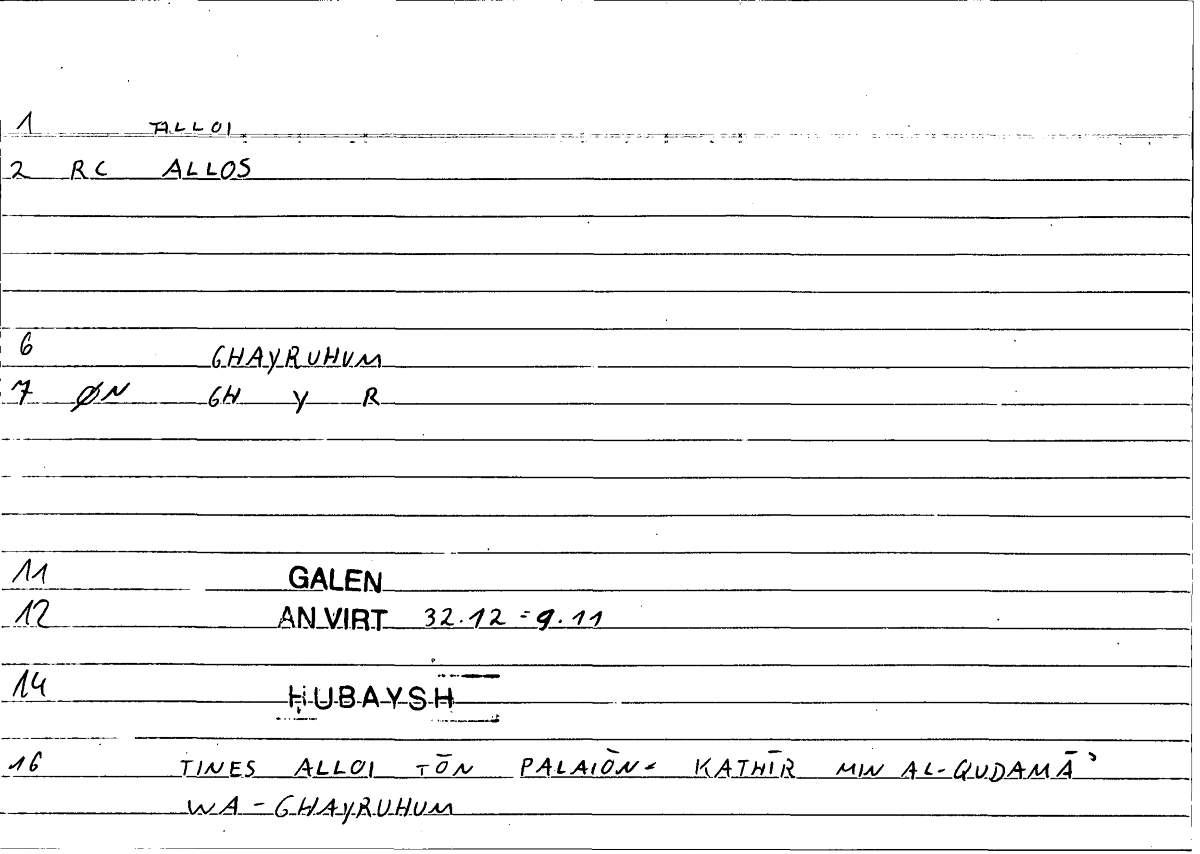 1 ALLOI
2 RC ALLOS
6 GHAYRUHUM
7 ØN GH Y R
11 GALEN
12 AN VIRT 32.12 = 9.11
14 ḤUBAYSH
16 TINES ALLOI TŌN PALAIṐN = KATHĪR MIN AL-QUDAMĀʾ
WA-GHAYRUHUM